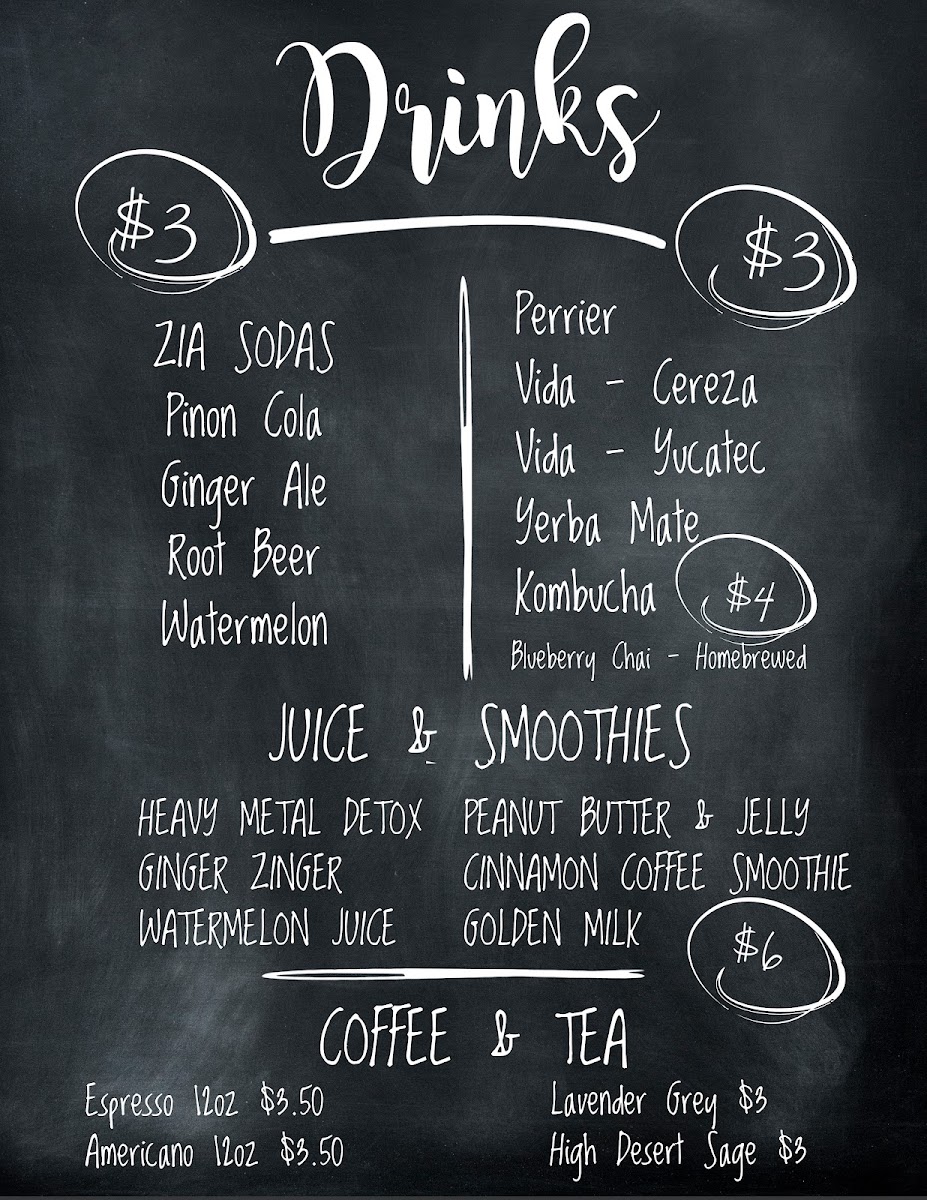 Drinks
$3
$3
ZIA SODAS
Pinon Cola
Ginger Ale
Root Beer
Watermelon
Perrier
Vida - Cereza
Vida - Yucatec
Yerba Mate
Kombucha $4
Blueberry Chai - Homebrewed
JUICE & SMOOTHIES
HEAVY METAL DETOX
GINGER ZINGER
WATERMELON JUICE
PEANUT BUTTER & JELLY
CINNAMON COFFEE SMOOTHIE
GOLDEN MILK
$6
COFFEE & TEA
Espresso 12oz $3.50
Americano 12oz $3.50
Lavender Grey $3
High Desert Sage $3